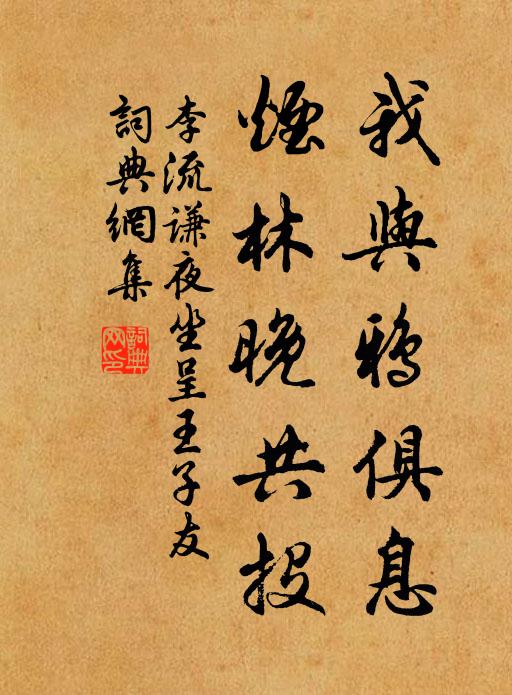 我與鴉俱息
煙林晚共投
李流謙夜坐呈王子友
詞典網集
詞典網印